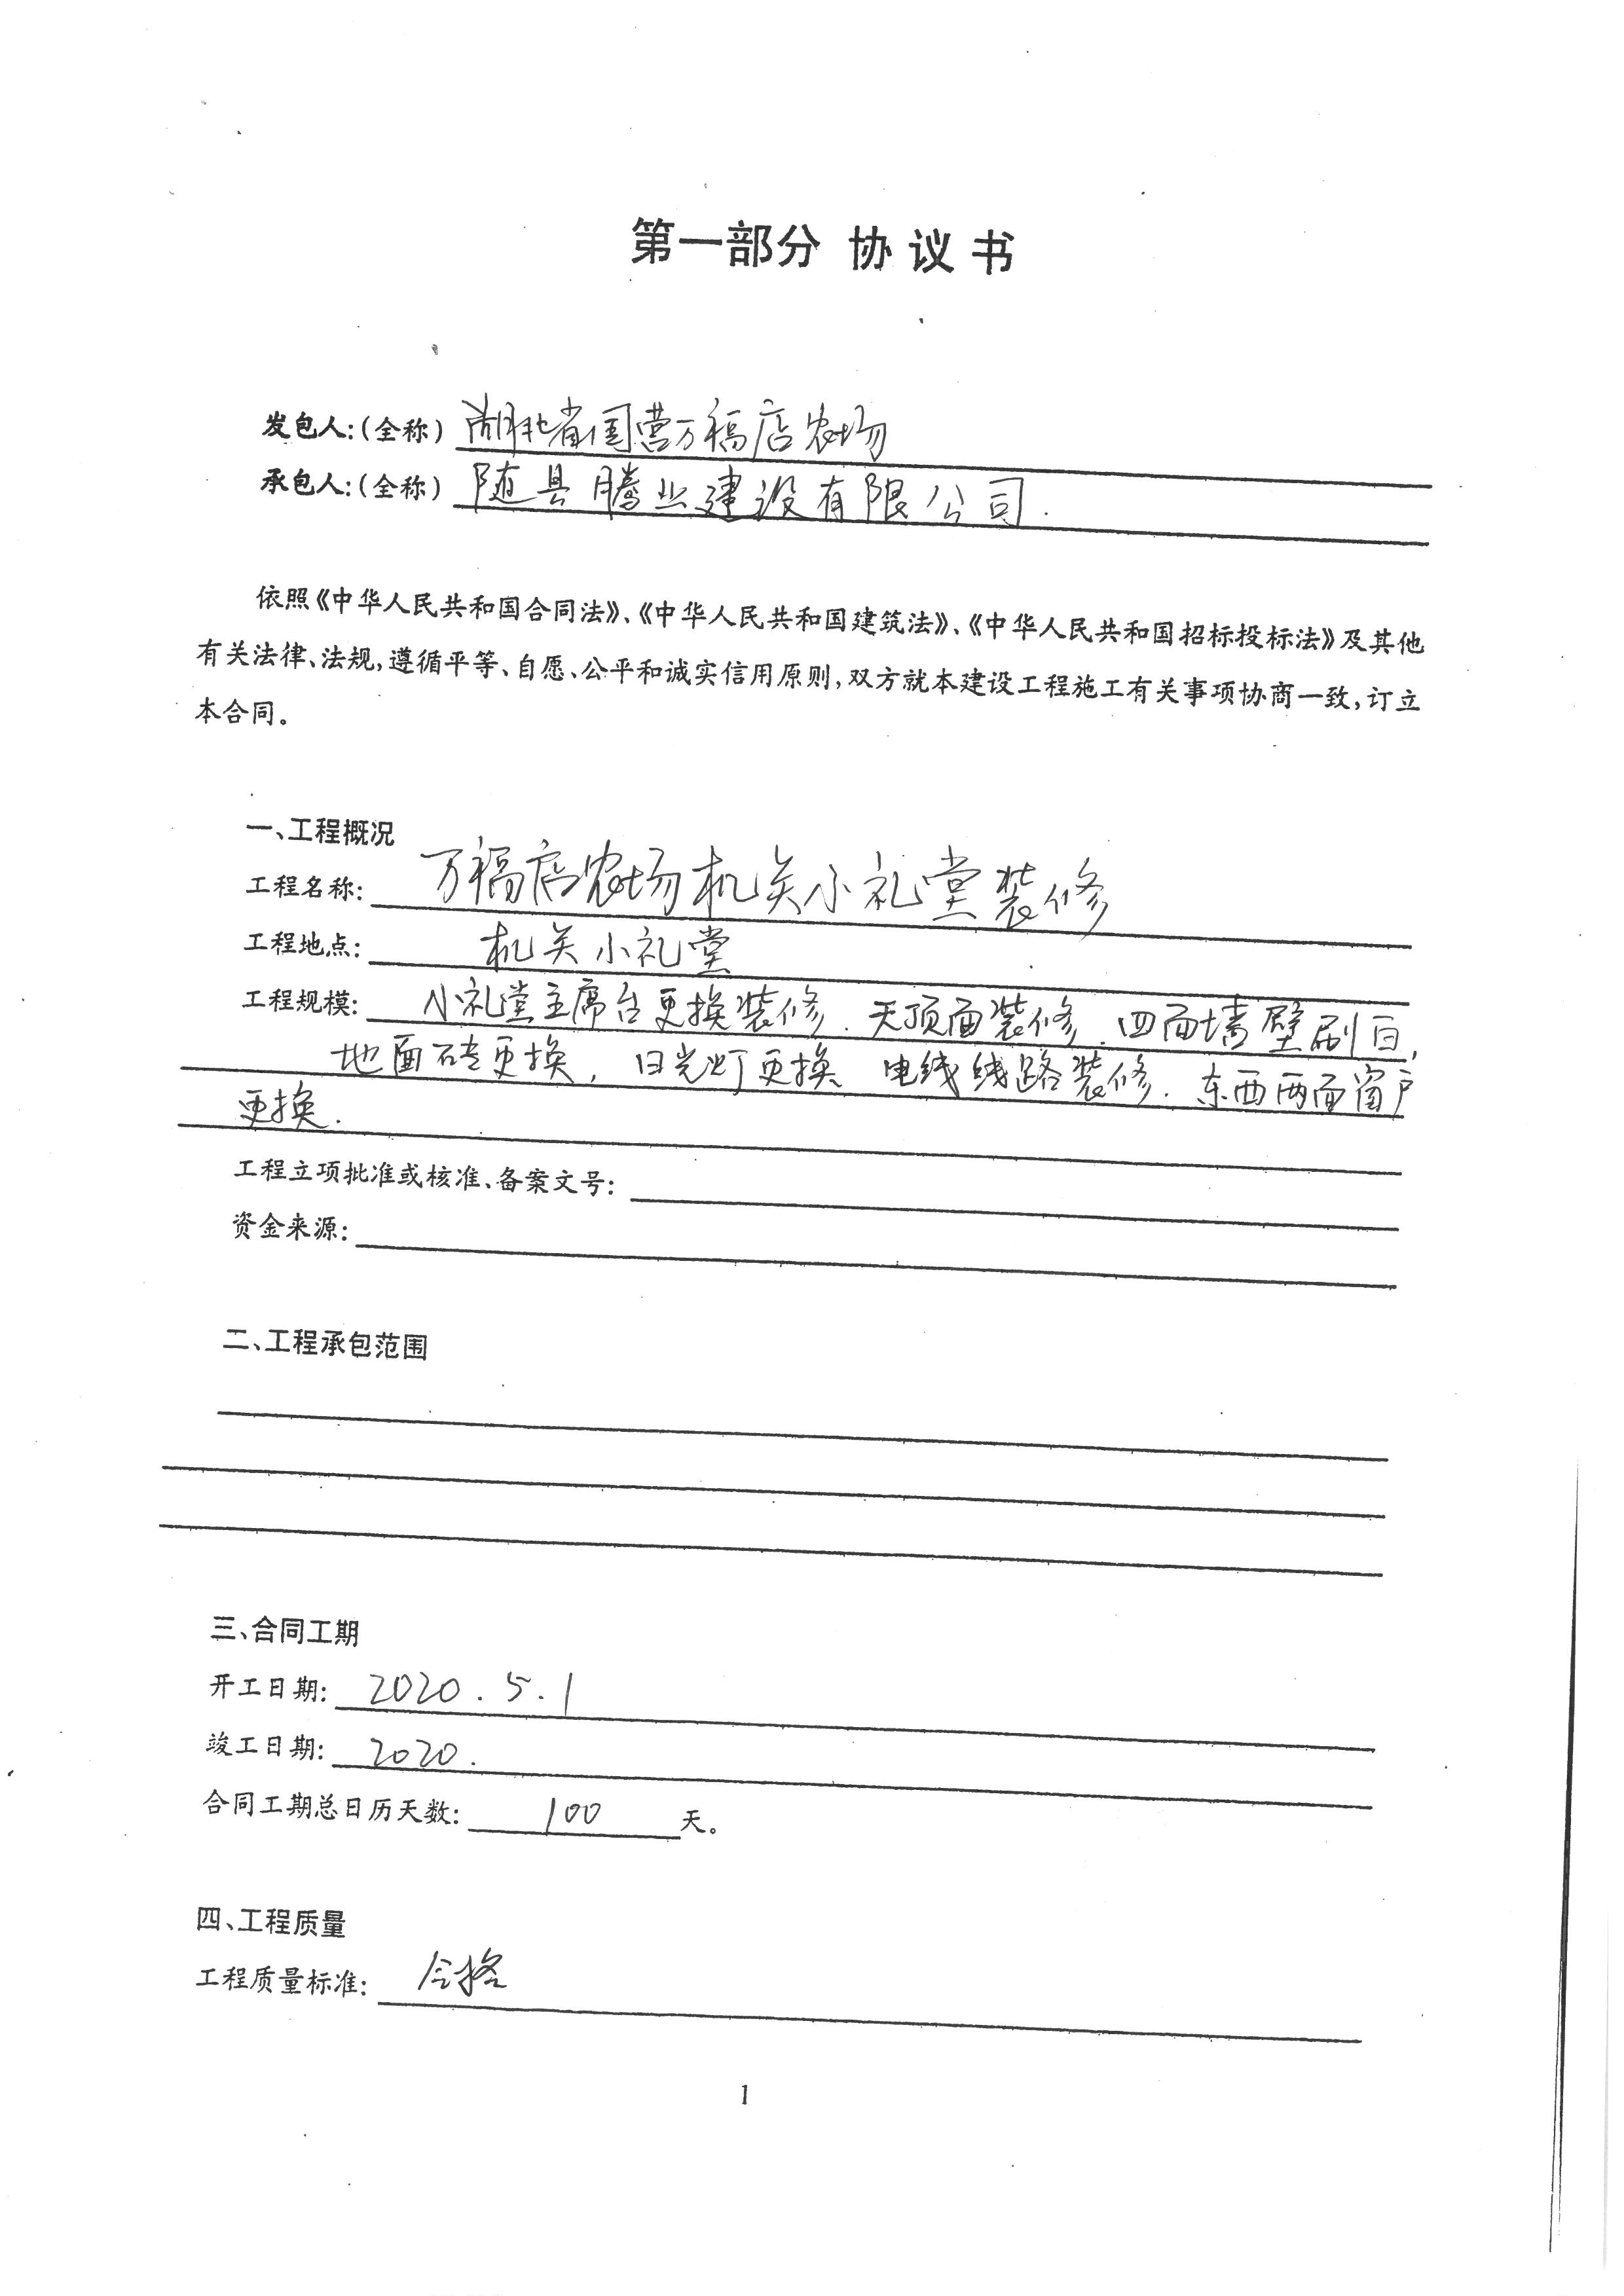 第一部分 协议书
发包人:(全称) 湖北省国营万福店农场
承包人:(全称) 随县腾业建设有限公司.
依照《中华人民共和国合同法》、《中华人民共和国建筑法》、《中华人民共和国招标投标法》及其他
有关法律、法规,遵循平等、自愿、公平和诚实信用原则,双方就本建设工程施工有关事项协商一致,订立
本合同。
一、工程概况
工程名称: 万福店农场机关小礼堂装修
工程地点: 机关小礼堂
工程规模: 小礼堂主席台更换装修.天顶面装修.四面墙壁刷白,
地面砖更换,日光灯更换 电线线路装修.东西两面窗户
更换.
工程立项批准或核准、备案文号:
资金来源:
二、工程承包范围
三、合同工期
开工日期: 2020.5.1
竣工日期: 2020.
合同工期总日历天数: 100 天。
四、工程质量
工程质量标准: 合格
1